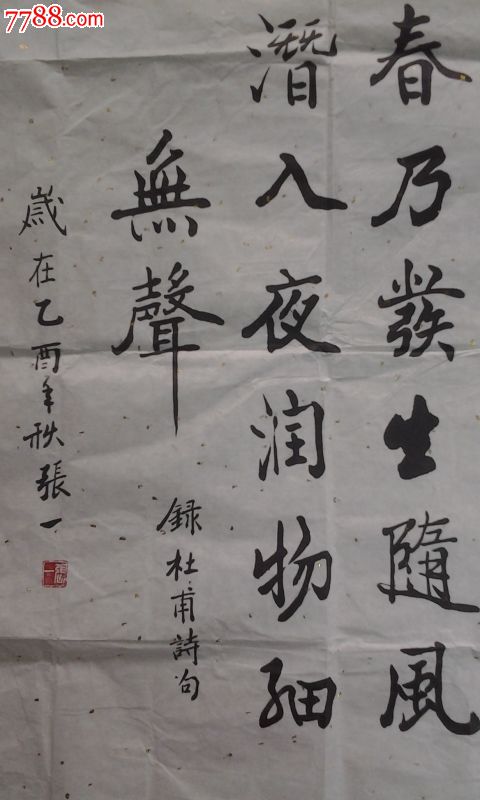 7788.com
春乃發生隨風
潛入夜润物细
無聲
録杜甫詩句
歲在乙酉年秋張一